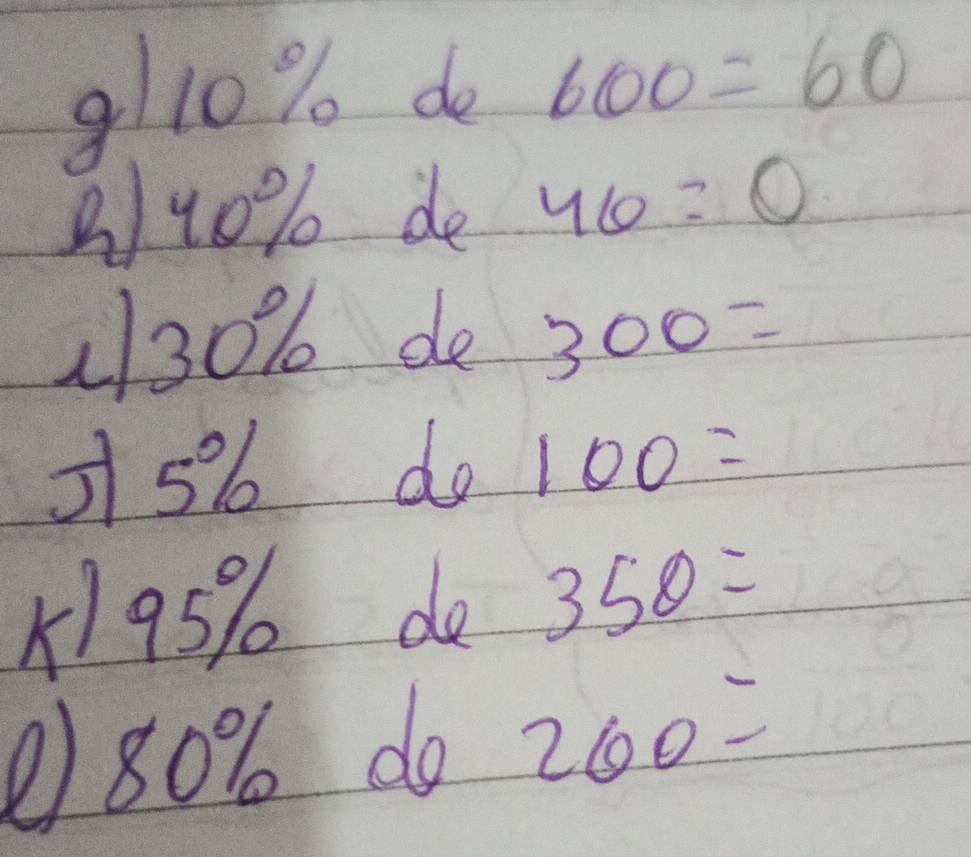 g) 10% de 600 = 60
h) 40% de 40 = 0
i) 30% de 300 =
J) 5% de 100 =
K) 95% de 350 =
l) 80% de 200 =